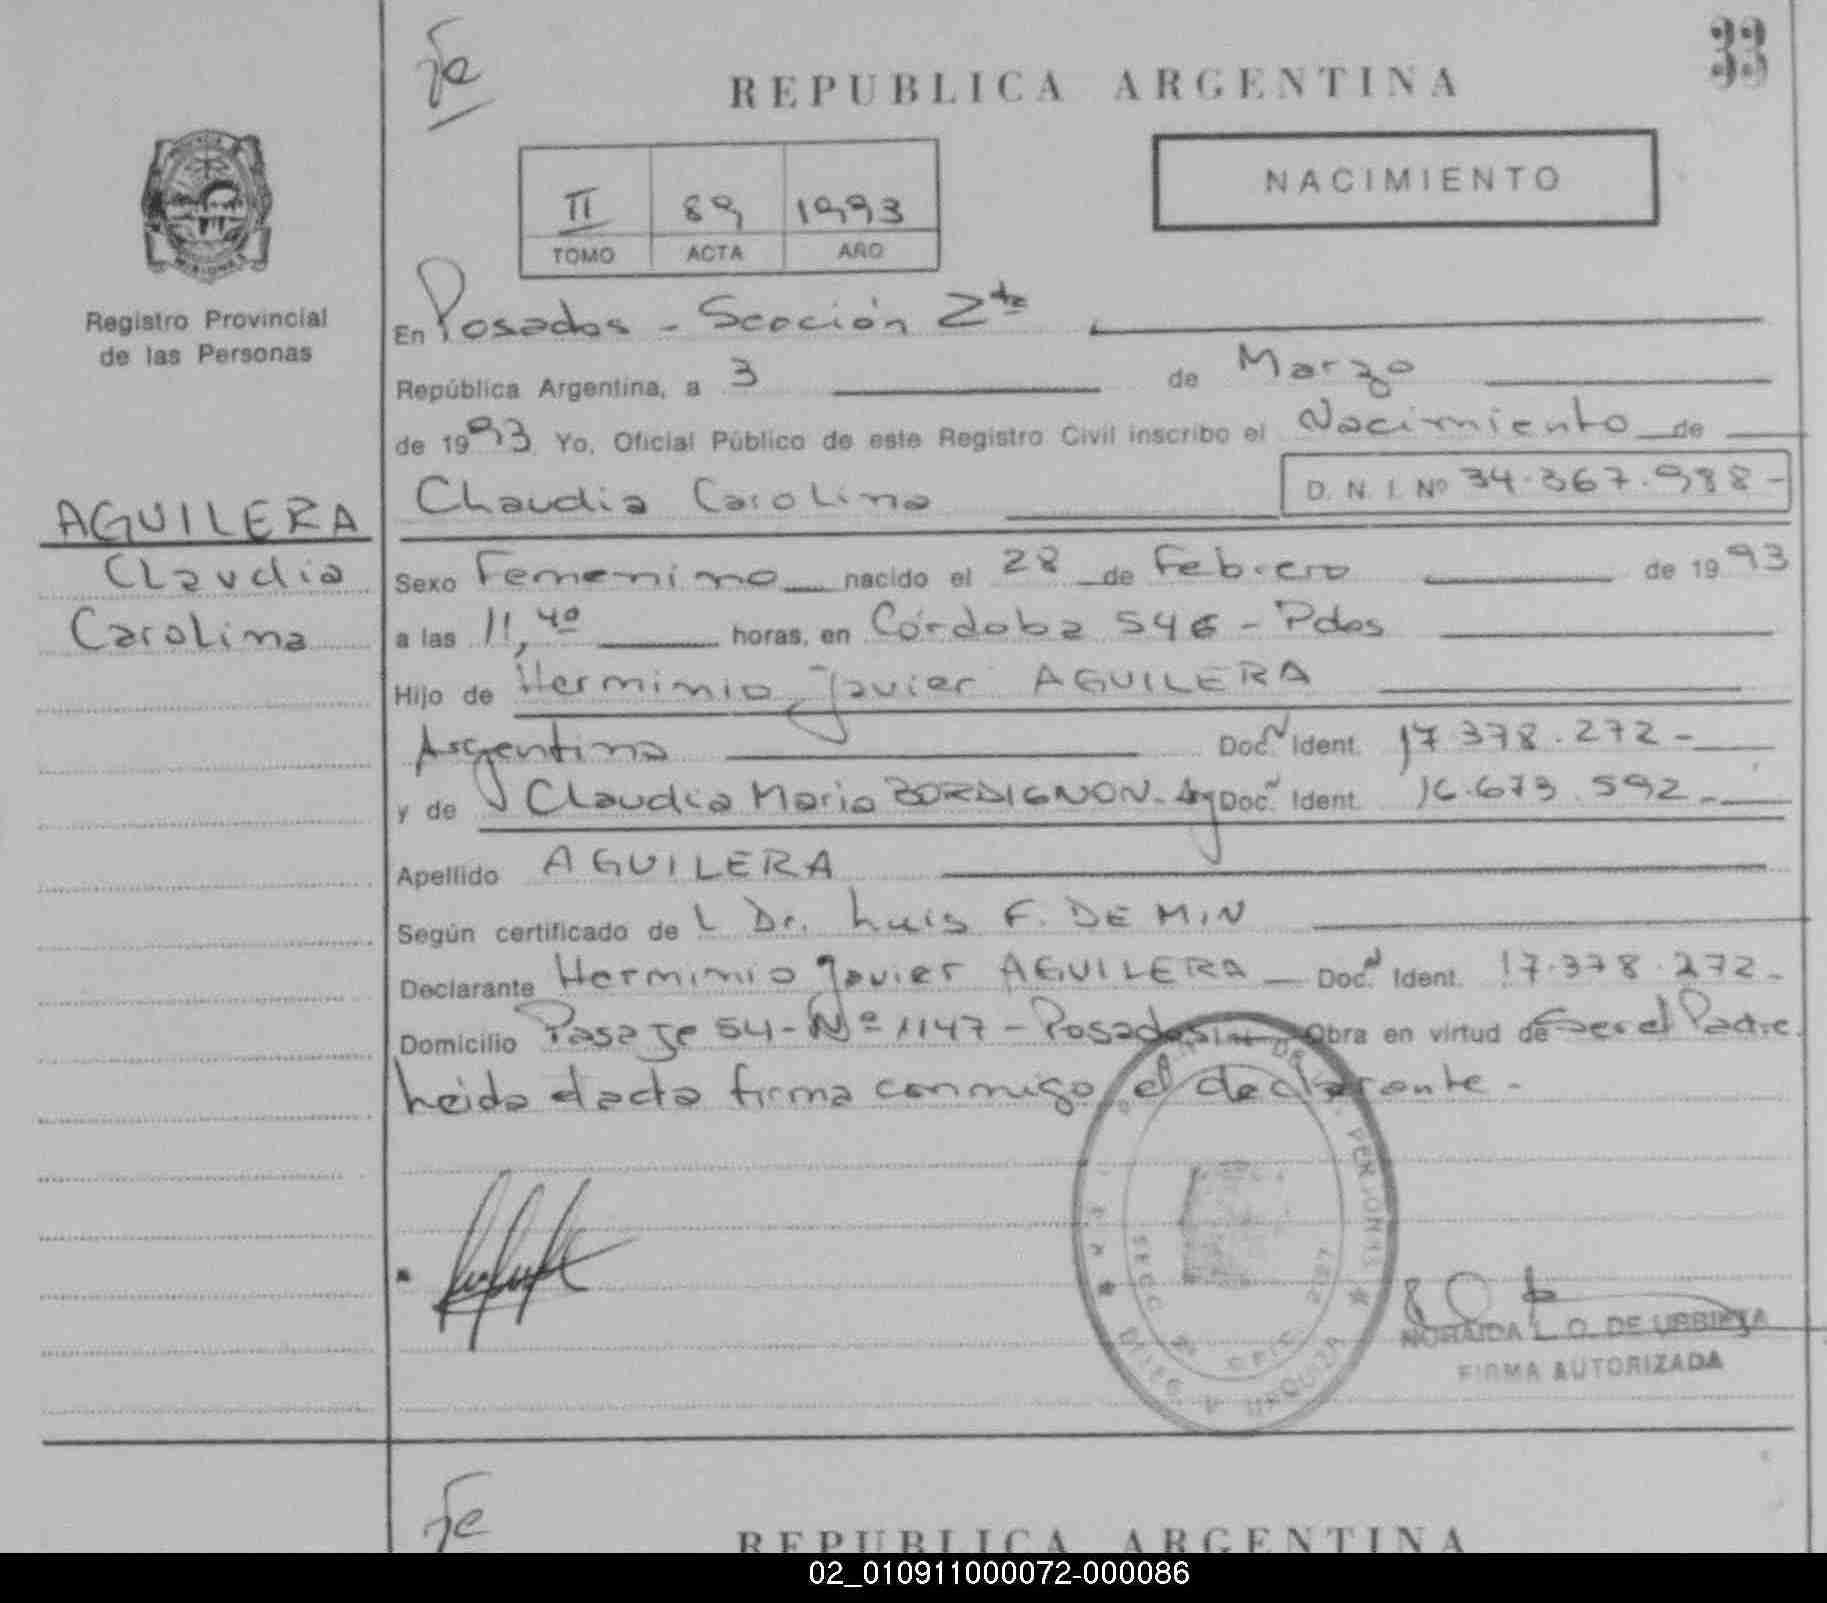 33
REPUBLICA ARGENTINA
NACIMIENTO
II 89 1993
TOMO ACTA AÑO
MISIONES
Registro Provincial
de las Personas
AGUILERA
Claudia
Carolina
En Posadas - Sección 2da
República Argentina, a 3 de Marzo
de 1993 Yo, Oficial Público de este Registro Civil inscribo el Nacimiento de
Claudia Carolina D. N. I. Nº 34.367.988-
Sexo Femenino nacido el 28 de Febrero de 1993
a las 11,40 horas, en Córdoba 546 - Pdas
Hijo de Herminio Javier AGUILERA
Argentino Doc. Ident. 17.378.272-
y de Claudia Maria BORDIGNON - Arg Doc. Ident. 16.673.592-
Apellido AGUILERA
Según certificado de L Dr. Luis F. DE MIN
Declarante Herminio Javier AGUILERA - Doc. Ident. 17.378.272-
Domicilio Pasaje 54 - Nº 1147 - Posadas Obra en virtud de Ser el Padre.
Leida el acta firma conmigo el declarante -
NORAIDA L. O. DE URBIETA
FIRMA AUTORIZADA
REPUBLICA ARGENTINA
02_010911000072-000086